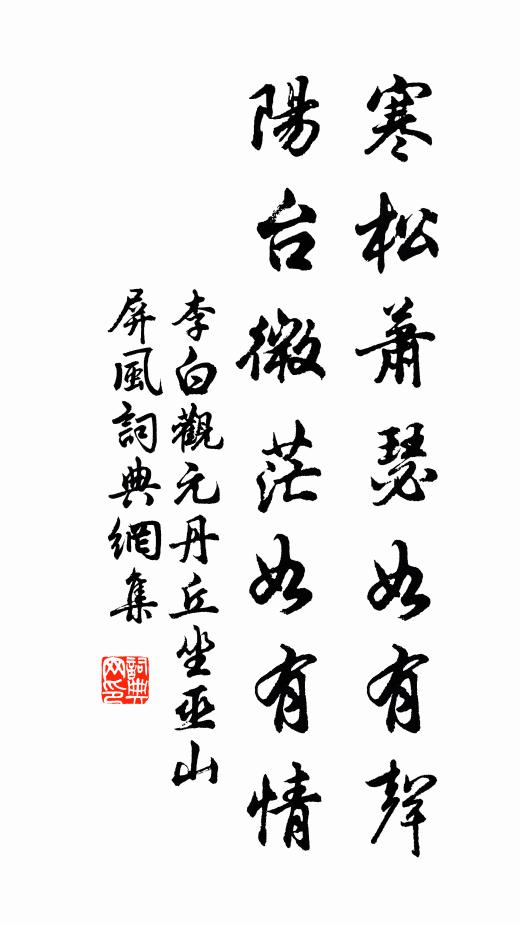 寒松蕭瑟如有聲
陽台微茫如有情
李白觀元丹丘坐巫山
屏風詞典網集
詞典网印